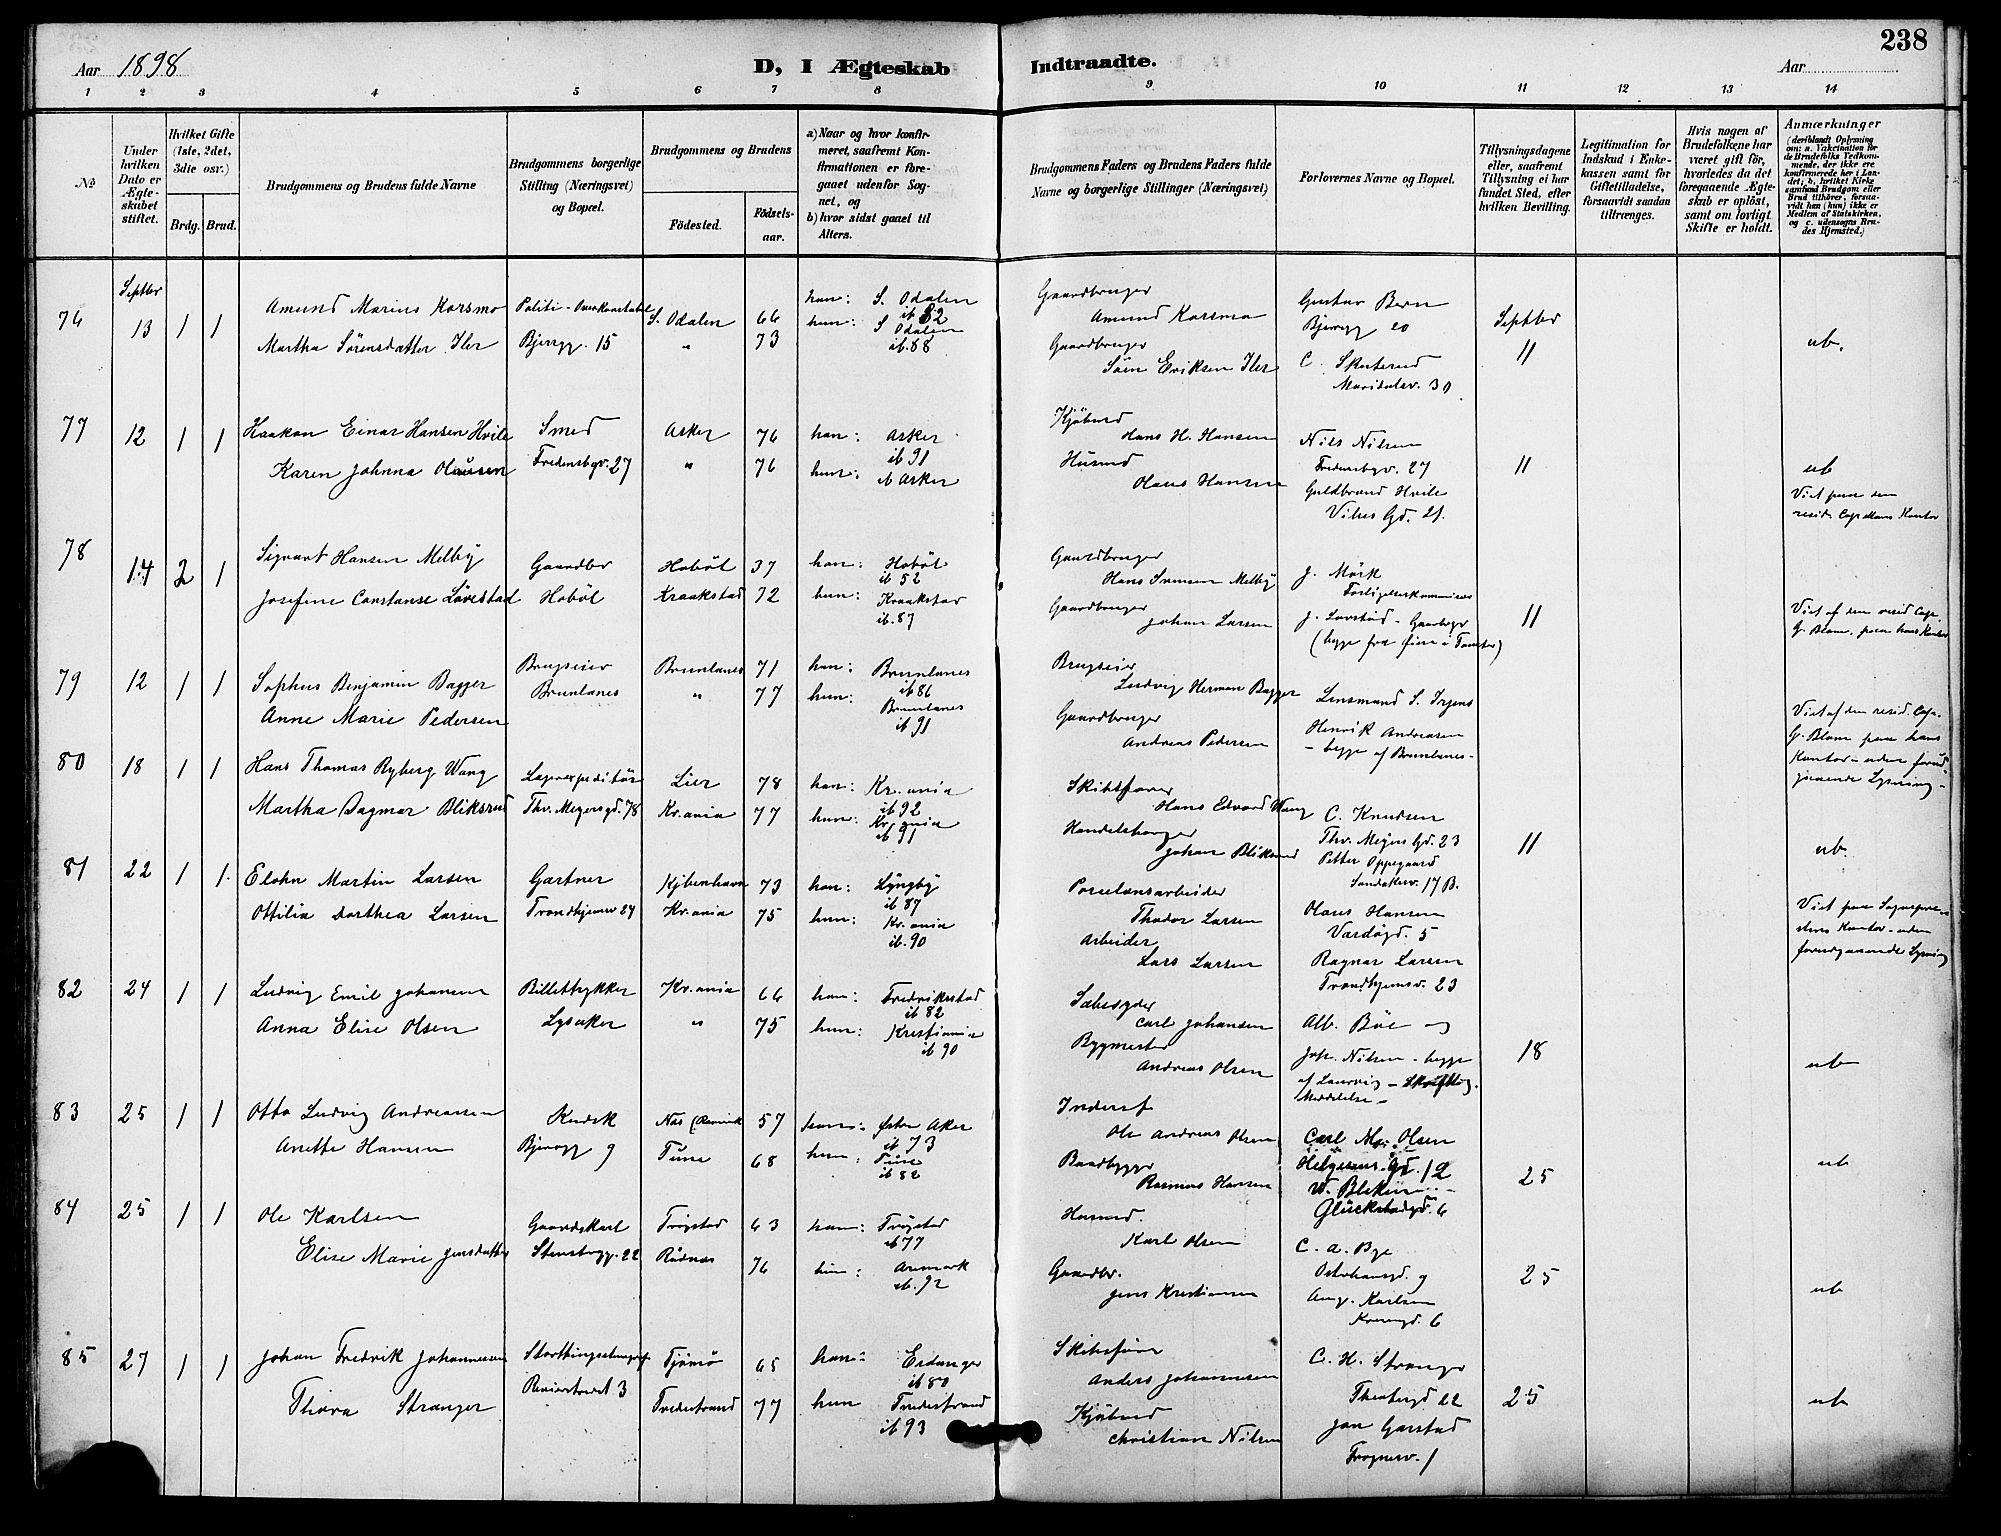 238
Aar 1898
D, I Ægteskab Indtraadte.
Aar
1 2 3 4 5 6 7 8 9 10 11 12 13 14
No
Under hvilken Dato er Ægteskabet stiftet.
Hvilket Gifte (1ste, 2det, 3die osv.)
Brdg. Brud.
Brudgommens og Brudens fulde Navne
Brudgommens borgerlige Stilling (Næringsvei) og Bopæl.
Brudgommens og Brudens
Födested.
Födsels-aar.
a) Naar og hvor konfirmeret, saafremt Konfirmationen er foregaaet udenfor Sognet, og
b) hvor sidst gaaet til Alters.
Brudgommens Faders og Brudens Faders fulde Navne og borgerlige Stillinger (Næringsvei)
Forlovernes Navne og Bopæl.
Tillysningsdagene eller, saafremt Tillysning ei har fundet Sted, efter hvilken Bevilling.
Legitimation for Indskud i Enkekassen samt for Giftetilladelse, forsaavidt saadan tiltrænges.
Hvis nogen af Brudefolkene har været gift för, hvorledes da det foregaaende Ægteskab er oplöst, samt om lovligt Skifte er holdt.
Anmærkninger
(deriblandt Oplysning om: a. Vakcination for de Brudefolks Vedkommende, der ikke ere konfirmerede her i Landet; b, hvilket Kirkesamfund Brudgom eller Brud tilhörer, forsaavidt han (hun) ikke er Medlem af Statskirken, og c. udensogns Brudes Hjemsted.)
76 Septbr 13 1 1
Amund Marius Korsmo Politi-Overkonstabel S. Odalen 66 han: S. Odalen ib 82
Martha Sörensdatter Iler Bjergg. 15 " 73 hun: S Odalen ib. 88
Gaardbruger Amund Korsmo
Gaardbruger Sören Eriksen Iler
Gustav Bern Bjergg 20
C. Skuterud Maridalsv. 30
Septbr 11
ub.
77 12 1 1
Haakon Einar Hansen Hvile Smed Asker 76 han: Asker ib 91
Karen Johnna Olausen Fredensbgv. 27 " 76 hun: ib Asker
Kjöbmd Hans H. Hansen
Husmd Olaus Hansen
Nils Nilsen Fredensbgv. 27
Guldbrand Hvile Vibes Gd. 21.
11
ub
Viet paa den resid. Cap.llans Kontor
78 14 2 1
Sigvart Hansen Melby Gaardbr Hobøl 37 han: Hobøl ib 52
Josefine Constanse Lövestad Hobøl Kraakstad 72 hun: Kraakstad ib. 87
Gaardbruger Hans Svensen Melby
Gaardbruger Johan Larsen
J. Mörk Forligelseskommissær
J. Lovstad - Gaardbrgr
(begge fra fine i Tomter)
11
Viet af den resid Cap. G. Blom. paa hans Kontor
79 12 1 1
Sophus Benjamin Bagger Brugseier Brunlanes 71 han: Brunlanes ib 86
Anne Marie Pedersen Brunlanes " 77 hun: Brunlanes ib 91
Brugseier Ludvig Herman Bagger
Gaardbruger Andreas Pedersen
Lensmand S. Irgens
Henrik Andreasen - begge af Brunlanes -
Viet af den resid. Cap. G. Blom paa hans Kontor - uden forudgaaende Lysning -
80 18 1 1
Hans Thomas Ryberg Wang Lagerexpeditör Lier 78 han: Kr.ania ib 92
Martha Dagmar Bliksrud Thv. Meyersgd. 78 Kr.ania 77 hun: Kr.ania ib 91
Skibsförer Hans Edvard Wang
Handelsborger Johan Bliksrud
C. Knudsen Thv. Meyers Gd. 23
Petter Oppegaard Sandakerv. 17 B.
11
ub.
81 22 1 1.
Elohn Martin Larsen Gartner Kjöbenhavn 73 han: Lyngby ib 87
Ottilia Dorthea Larsen Trondhjemsv 24 Kr.ania 75 hun: Kr.ania ib. 90
Porcelænsarbeider Thodor Larsen
Arbeider Lars Larsen
Olaus Hansen Vardøgd. 5
Ragnar Larsen Trondhjemsv. 23
Viet paa Sognepræstens Kontor - uden forudgaaende Lysning
82 24 1 1
Ludvig Emil Johansen Billettrykker Kr.ania 66 han: Fredrikstad ib 82
Anna Elise Olsen Lysaker " 75 hun: Kristiania ib 90
Sæbesyder Carl Johansen
Bygmester Andreas Olsen
Alb. Böe og
Joh. Nilsen - begge af Laurvig - Skriftlig Meddelelse -
18
ub
83 25 1 1
Otto Ludvig Andreassen Kudsk Næs 57 han: Østre Aker ib 73
Anette Hansen Bjergg 9 Tune 68 hun: Tune ib 82
Inderst Ole Andreas Olsen
Baadbygger Rasmus Hansen
Carl M. Olsen Helgesens Gd. 12
Glückstadgd. 6
25
ub
84 25 1 1
Ole Karlsen Gaardskarl Trögstad 63 han: Trögstad ib 77
Elise Marie Jensdatter Stensbergg. 22 Rödnæs 76 hun: Aremark ib. 92
Husmd. Karl Olsen
Gaardbr. Jens Kristiansen
C. A. Bye Osterhausgd. 9
Aug. Karlsen
25
ub
85 27 1 1
Johan Fredrik Johannessen Storthingsstenograf Tjömö 65 han: Eidanger ib 80
Thora Stranger Revierstredet 3 Tvedestrand 77 hun Tvedestrand ib 93
Skibsförer Anders Johannesen
Kjöbmd Christian Nilsen
C. H. Stranger Theatergd 22
Jon Garstad Frognerv. 1
25
ub